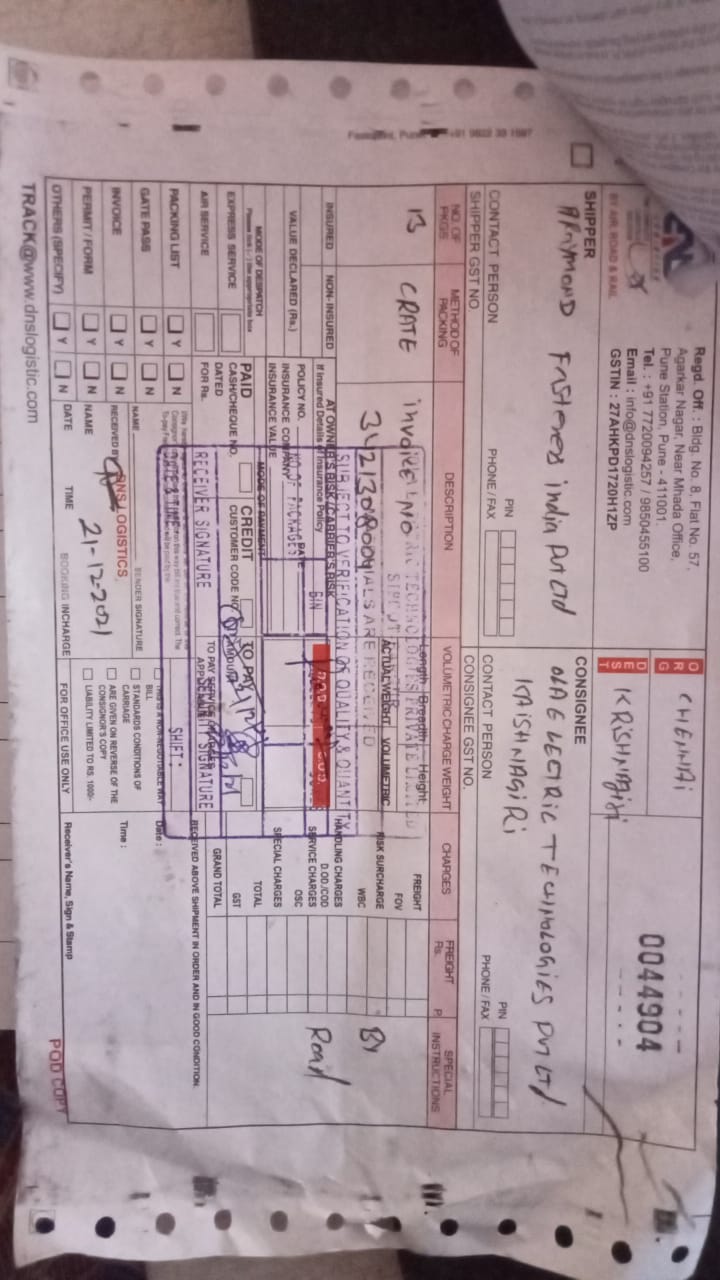 Regd. Off. : Bldg. No. 8, Flat No. 57,
Agarkar Nagar, Near Mhada Office,
Pune Station, Pune - 411001.
Tel. : +91 7720094257 / 9850455100
Email : info@dnslogistic.com
GSTIN : 27AHKPD1720H1ZP
BY AIR, ROAD & RAIL
ORG
CHENNAI
DEST
KRISHNAGIRI
0044904
SHIPPER
ARAYMOND FASTENERS india Pvt Ltd
CONSIGNEE
OLA ELECTRIC TECHNOLOGIES PVT LTD
KRISHNAGIRI
PIN
PIN
CONTACT PERSON
PHONE / FAX
CONTACT PERSON
PHONE / FAX
SHIPPER GST NO.
CONSIGNEE GST NO.
NO. OF PKGS
METHOD OF PACKING
DESCRIPTION
VOLUMETRIC CHARGE WEIGHT
CHARGES
FREIGHT
Rs. P.
SPECIAL INSTRUCTIONS
13
CRATE
invoice no
3421308004
Length Breadth Height
ACTUAL WEIGHT VOLUMETRIC
FREIGHT
FOV
RISK SURCHARGE
WBC
HANDLING CHARGES
D.OD./COD
SERVICE CHARGES
OSC
SPECIAL CHARGES
TOTAL
GST
GRAND TOTAL
By
Road
TECHNOLOGIES PRIVATE LIMITED
MATERIALS ARE RECEIVED
SUBJECT TO VERIFICATION OF QUALITY & QUANTITY
NO OF PACKAGES
GIN
DATE & TIME
SHIFT :
RECEIVER SIGNATURE
SECURITY SIGNATURE
INSURED
NON-INSURED
AT OWNER'S RISK / CARRIER'S RISK
VALUE DECLARED (Rs.)
If insured Details of Insurance Policy
POLICY NO.
DATE
INSURANCE COMPANY
INSURANCE VALUE
MODE OF DESPATCH
MODE OF PAYMENT
EXPRESS SERVICE
AIR SERVICE
PAID
CREDIT
TO PAY
CASH/CHEQUE NO.
CUSTOMER CODE NO.
DATED
FOR Rs.
PACKING LIST Y N
GATE PASS Y N
INVOICE Y N
PERMIT / FORM Y N
OTHERS (SPECIFY) Y N
NAME
SENDER SIGNATURE
RECEIVED BY DNS LOGISTICS
NAME
21-12-2021
DATE
TIME
BOOKING INCHARGE
THIS IS A NON-NEGOTIABLE WAY BILL
STANDARDS CONDITIONS OF CARRIAGE
ARE GIVEN ON REVERSE OF THE CONSIGNOR'S COPY
LIABILITY LIMITED TO RS. 1000/-
FOR OFFICE USE ONLY
RECEIVED ABOVE SHIPMENT IN ORDER AND IN GOOD CONDITION
Date :
Time :
Receiver's Name, Sign & Stamp
TRACK@www.dnslogistic.com
POD COPY